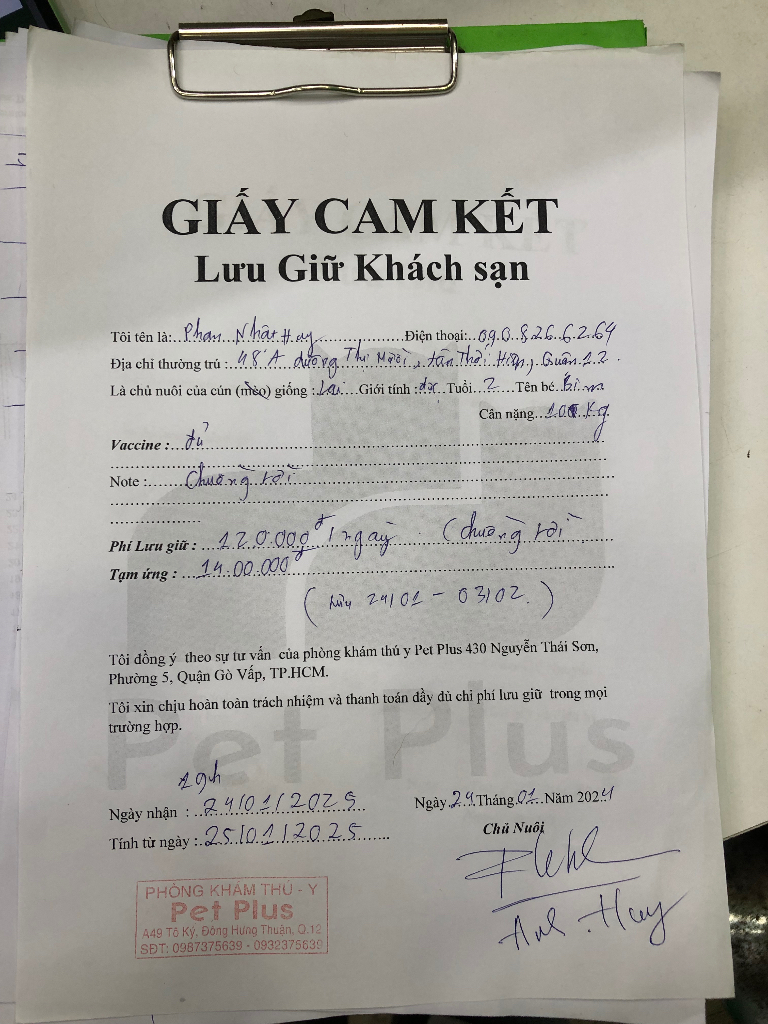 GIẤY CAM KẾT
Lưu Giữ Khách sạn
Tôi tên là: Phan Nhật Huy Điện thoại: 090.826.6264
Địa chỉ thường trú : 48A đường Thị Mười, Tân Thới Hiệp, Quận 12.
Là chủ nuôi của cún (mèo) giống : Lai Giới tính : đực Tuổi 2 Tên bé
Cân nặng Kg
Vaccine : đủ
Note : Chuồng rời
Phí Lưu giữ : 120.000đ / ngày (chuồng rời
Tạm ứng : 14.00.000đ
( 24/01 - 03/02. )
Tôi đồng ý theo sự tư vấn của phòng khám thú y Pet Plus 430 Nguyễn Thái Sơn,
Phường 5, Quận Gò Vấp, TP.HCM.
Tôi xin chịu hoàn toàn trách nhiệm và thanh toán đầy đủ chi phí lưu giữ trong mọi
trường hợp.
Pet Plus
19h
Ngày nhận : 24/01/2025 Ngày 24 Tháng 01 Năm 2024
Tính từ ngày : 25/01/2025 Chủ Nuôi
PHÒNG KHÁM THÚ - Y
Pet Plus
A49 Tô Ký, Đông Hưng Thuận, Q.12
SĐT: 0987375639 - 0932375639
Anh Huy